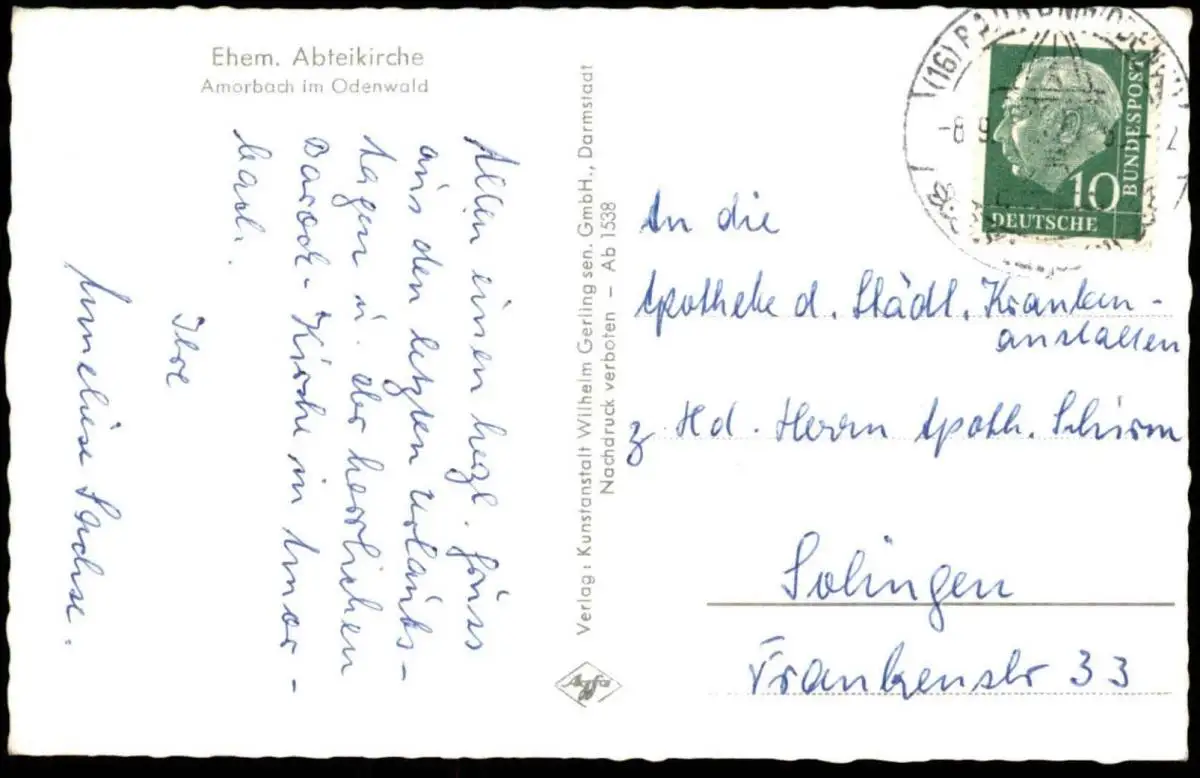 Ehem. Abteikirche
Amorbach im Odenwald
Allen einen herzl. Gruss
aus den letzten Urlaubs-
tagen u. der herrlichen
Barock-Kirche in Amor-
bach.
Ihre
Anneliese Sachse.
Verlag: Kunstanstalt Wilhelm Gerling sen. GmbH., Darmstadt
Nachdruck verboten – Ab 1538
(16)
-8.9.
DEUTSCHE
BUNDESPOST
10
An die
Apotheke d. Städt. Kranken-
anstalten
z Hd. Herrn Apoth. Schirm
Solingen
Frankenstr 33